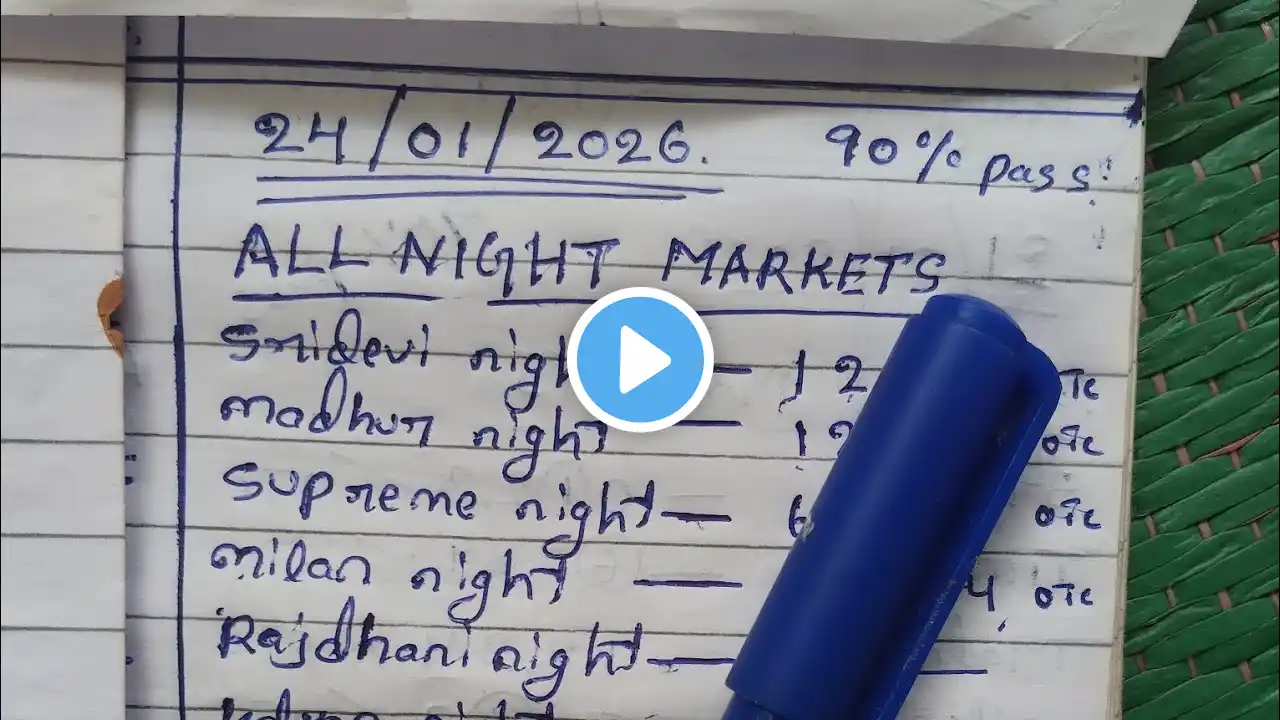 24/01/2026. 90% pass.
ALL NIGHT MARKETS
Sridevi night — 1 2 OTC
madhur night — 1 2 OTC
Supreme night — 6 OTC
milan night — 4 OTC
Rajdhani night —